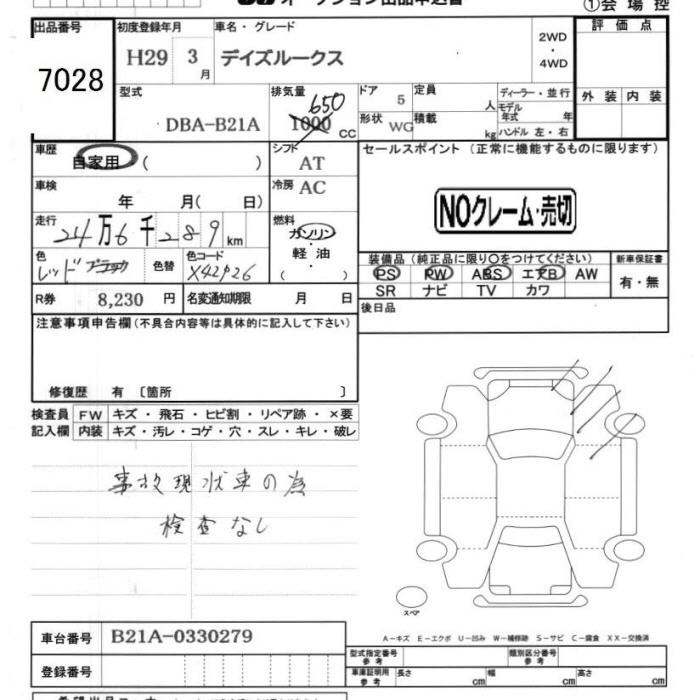 オークション出品申込書
①会場控
出品番号
7028
初度登録年月
H29 3月
車名・グレード
デイズルークス
2WD
・
4WD
評価点
外装 内装
型式
DBA-B21A
排気量
650
1000 CC
ドア 5
形状 WG
定員 人
積載 kg
ディーラー・並行
モデル年式 年
ハンドル 左・右
車歴
自家用 ( )
シフト AT
セールスポイント (正常に機能するものに限ります)
車検 年 月( 日)
冷房 AC
NOクレーム・売切
走行 24万6千289km
燃料
ガソリン
・
軽油
( )
色
レッド
色替
色コード
X42P26
装備品 (純正品に限り○をつけてください)
PS PW ABS エアB AW
SR ナビ TV カワ
新車保証書
有・無
R券 8,230 円
名変通知期限 月 日
後日品
注意事項申告欄(不具合内容等は具体的に記入して下さい)
修復歴 有 〔箇所 〕
検査員記入欄
FW キズ・飛石・ヒビ割・リペア跡・×要
内装 キズ・汚レ・コゲ・穴・スレ・キレ・破レ
事故現状車の為
検査なし
スペア
A－キズ E－エクボ U－凹み W－補修跡 S－サビ C－腐食 XX－交換済
車台番号 B21A-0330279
登録番号
型式指定番号 参考
類別区分番号 参考
車庫証明用 参考
長さ cm
幅 cm
高さ cm